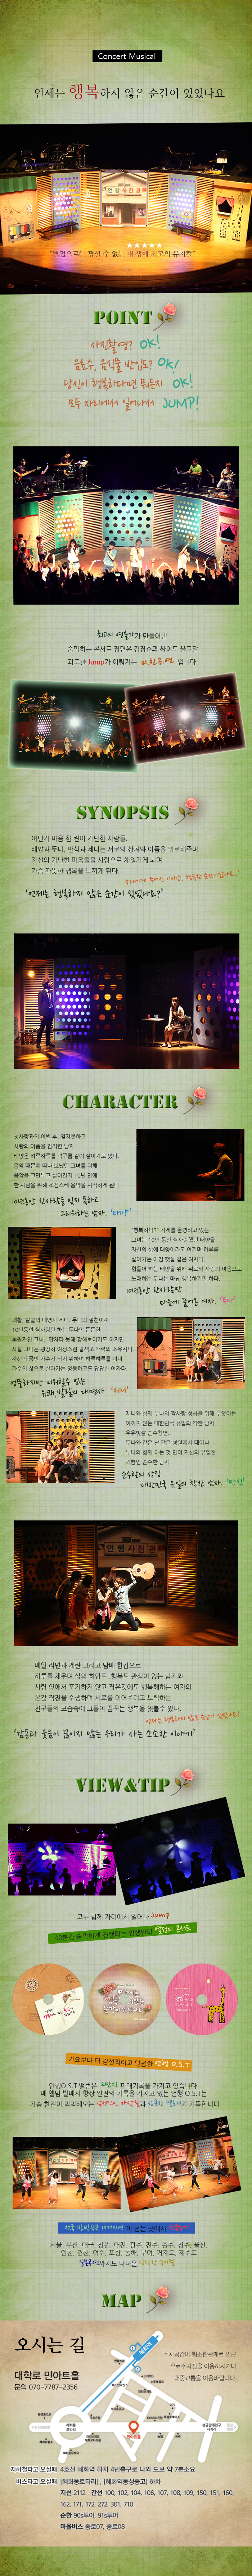 Concert Musical
언제는 행복하지 않은 순간이 있었나요
언행사진관
★★★★★
"별점으로는 평할 수 없는 내 생애 최고의 뮤지컬"
POINT
사진촬영? OK!
음료수, 음식물 반입도? OK!
당신이 행복하다면 뭐든지 OK!
모두 자리에서 일어나서 JUMP!
최고의 연출가가 만들어낸
숨막히는 콘서트 장면은 김장훈과 싸이도 울고갈
과도한 Jump가 이뤄지는 미친공연 입니다.
SYNOPSIS
어딘가 마음 한 켠이 가난한 사람들.
태양과 두나, 만식과 제니는 서로의 상처와 아픔을 위로해주며
자신의 가난한 마음들을 사랑으로 채워가게 되며
가슴 따뜻한 행복을 느끼게 된다.
'언제는 행복하지 않은 순간이 있었나요?'
CHARACTER
첫사랑과의 이별 후, 잊지못하고
사랑의 아픔을 간직한 남자.
태양은 하루하루를 먹구름 같이 살아가고 있다.
음악 때문에 떠나 보냈던 그녀를 위해
음악을 그만두고 살아간지 10년 만에
한 사람을 위해 조심스레 음악을 시작하게 된다
10년동안 한사람을 잊지 못하고
그리워하는 남자. '태양'
"행복하니?" 가게를 운영하고 있는
그녀는 10년 동안 짝사랑했던 태양을
자신의 삶에 태양이라고 여기며 하루를
살아가는 아침 햇살 같은 여자다.
힘들어 하는 태양을 위해 위로와 사랑의 마음으로
노래하는 두나는 마냥 행복하기만 하다.
10년동안 한사람만
마음에 품어온 여자. '두나'
쾌활, 발랄의 대명사 제니, 두나의 절친이자
10년동안 짝사랑만 하는 두나의 든든한
후원자인 그녀. 덤처다 못해 강해보이기도 하지만
사실 그녀는 굉장히 여성스런 팔색조 매력의 소유자다.
자신의 꿈인 가수가 되기 위하여 하루하루를 이미
가수의 삶으로 살아가는 엉뚱하고도 당당한 여자다.
엉뚱하지만 미워할수 없는
유쾌 발랄의 대명사 '제니'
제니와 함께 두나의 짝사랑 성공을 위해 무엇이든
아끼지 않는 대한민국 유일의 착한 남자.
우유빛깔 순수청년.
두나와 같은 날 같은 병원에서 태어나
두나와 함께 하는 것 만이 자신의 유일한
기쁨인 순수한 남자.
순수함의 상징
대한민국 유일의 착한 남자. '만식'
언행사진관
매일 라면과 계란 그리고 담배 한갑으로
하루를 채우며 삶의 희망도, 행복도 관심이 없는 남자와
사랑 앞에서 포기하지 않고 작은것에도 행복해하는 여자와
온갖 작전을 수행하며 서로를 이어주려고 노력하는
친구들의 모습속에 그들이 꿈꾸는 행복을 엿볼수 있다.
언제는 행복하지 않은 순간이 있었나요!
'감동과 웃음이 끊이지 않는 우리가 사는 소소한 이야기'
VIEW&TIP
모두 함께 자리에서 일어나 Jump
40분간 숨막히게 진행되는 언행만의 열정의 콘서트
가요보다 더 감성적이고 달콤한 언행 O.S.T
언행O.S.T 앨범은 2만장 판매기록을 가지고 있습니다.
매 앨범 발매시 항상 완판의 기록을 가지고 있는 언행 O.S.T는
가슴 한켠이 먹먹해오는 감성적인 가삿말과 달콤한 멜로디가 가득합니다
서울, 부산, 대구, 창원, 대전, 광주, 전주, 충주, 청주, 울산,
인천, 춘천, 여수, 포항, 동해, 부여, 거제도, 제주도
일본공연까지도 다녀온
MAP
오시는 길
대학로 민아트홀
문의 070-7787-2356
주차공간이 협소한관계로 인근
유료주차장을 이용하시거나
대중교통을 이용바랍니다.
혜화역
민아트홀
지하철타고 오실때 4호선 혜화역 하차 4번출구로 나와 도보 약 7분소요
버스타고 오실때 [혜화동로타리] , [혜화역동성중고] 하차
지선 2112 간선 100, 102, 104, 106, 107, 108, 109, 150, 151, 160,
162, 171, 172, 272, 301, 710
순환 90s투어, 91s투어
마을버스 종로07, 종로08